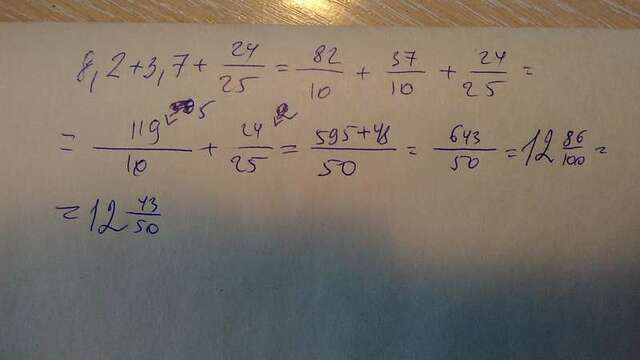 8,2+3,7+ 24/25 = 82/10 + 37/10 + 24/25 =
= 119/10 5 + 24/25 2 = 595+48/50 = 643/50 = 12 86/100 =
= 12 43/50